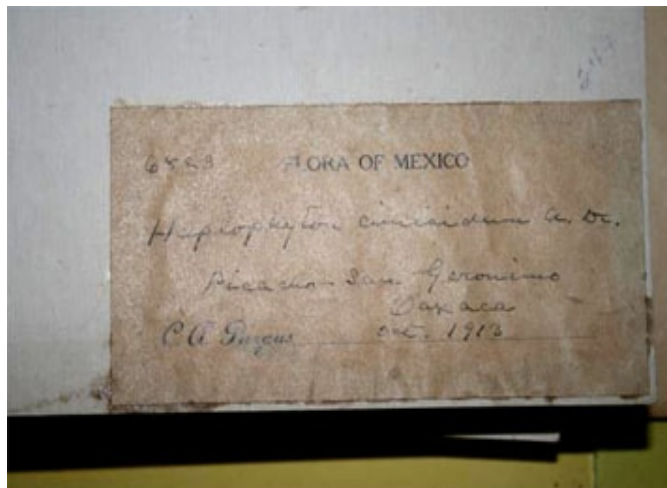 FLORA OF MEXICO
Haplophyton cimicidum A. Dc.
Picacho San Geronimo
Oaxaca
C. A. Purpus Oct. 1913